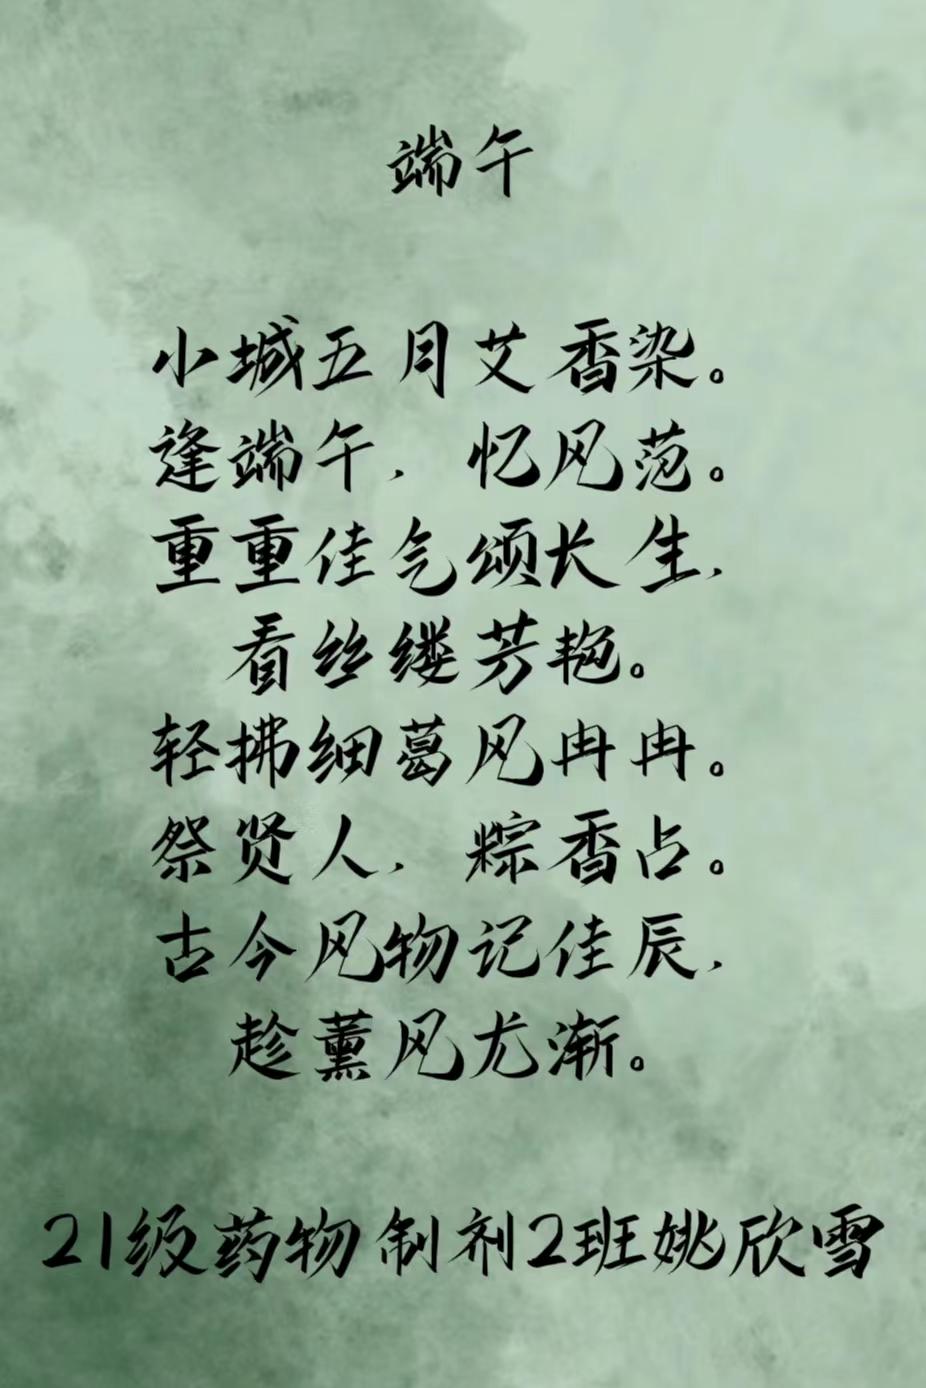 端午
小城五月艾香染。
逢端午，忆风范。
重重佳气颂长生，
看丝缕芳艳。
轻拂细葛风冉冉。
祭贤人，粽香占。
古今风物记佳辰，
趁薰风尤渐。
21级药物制剂2班姚欣雪